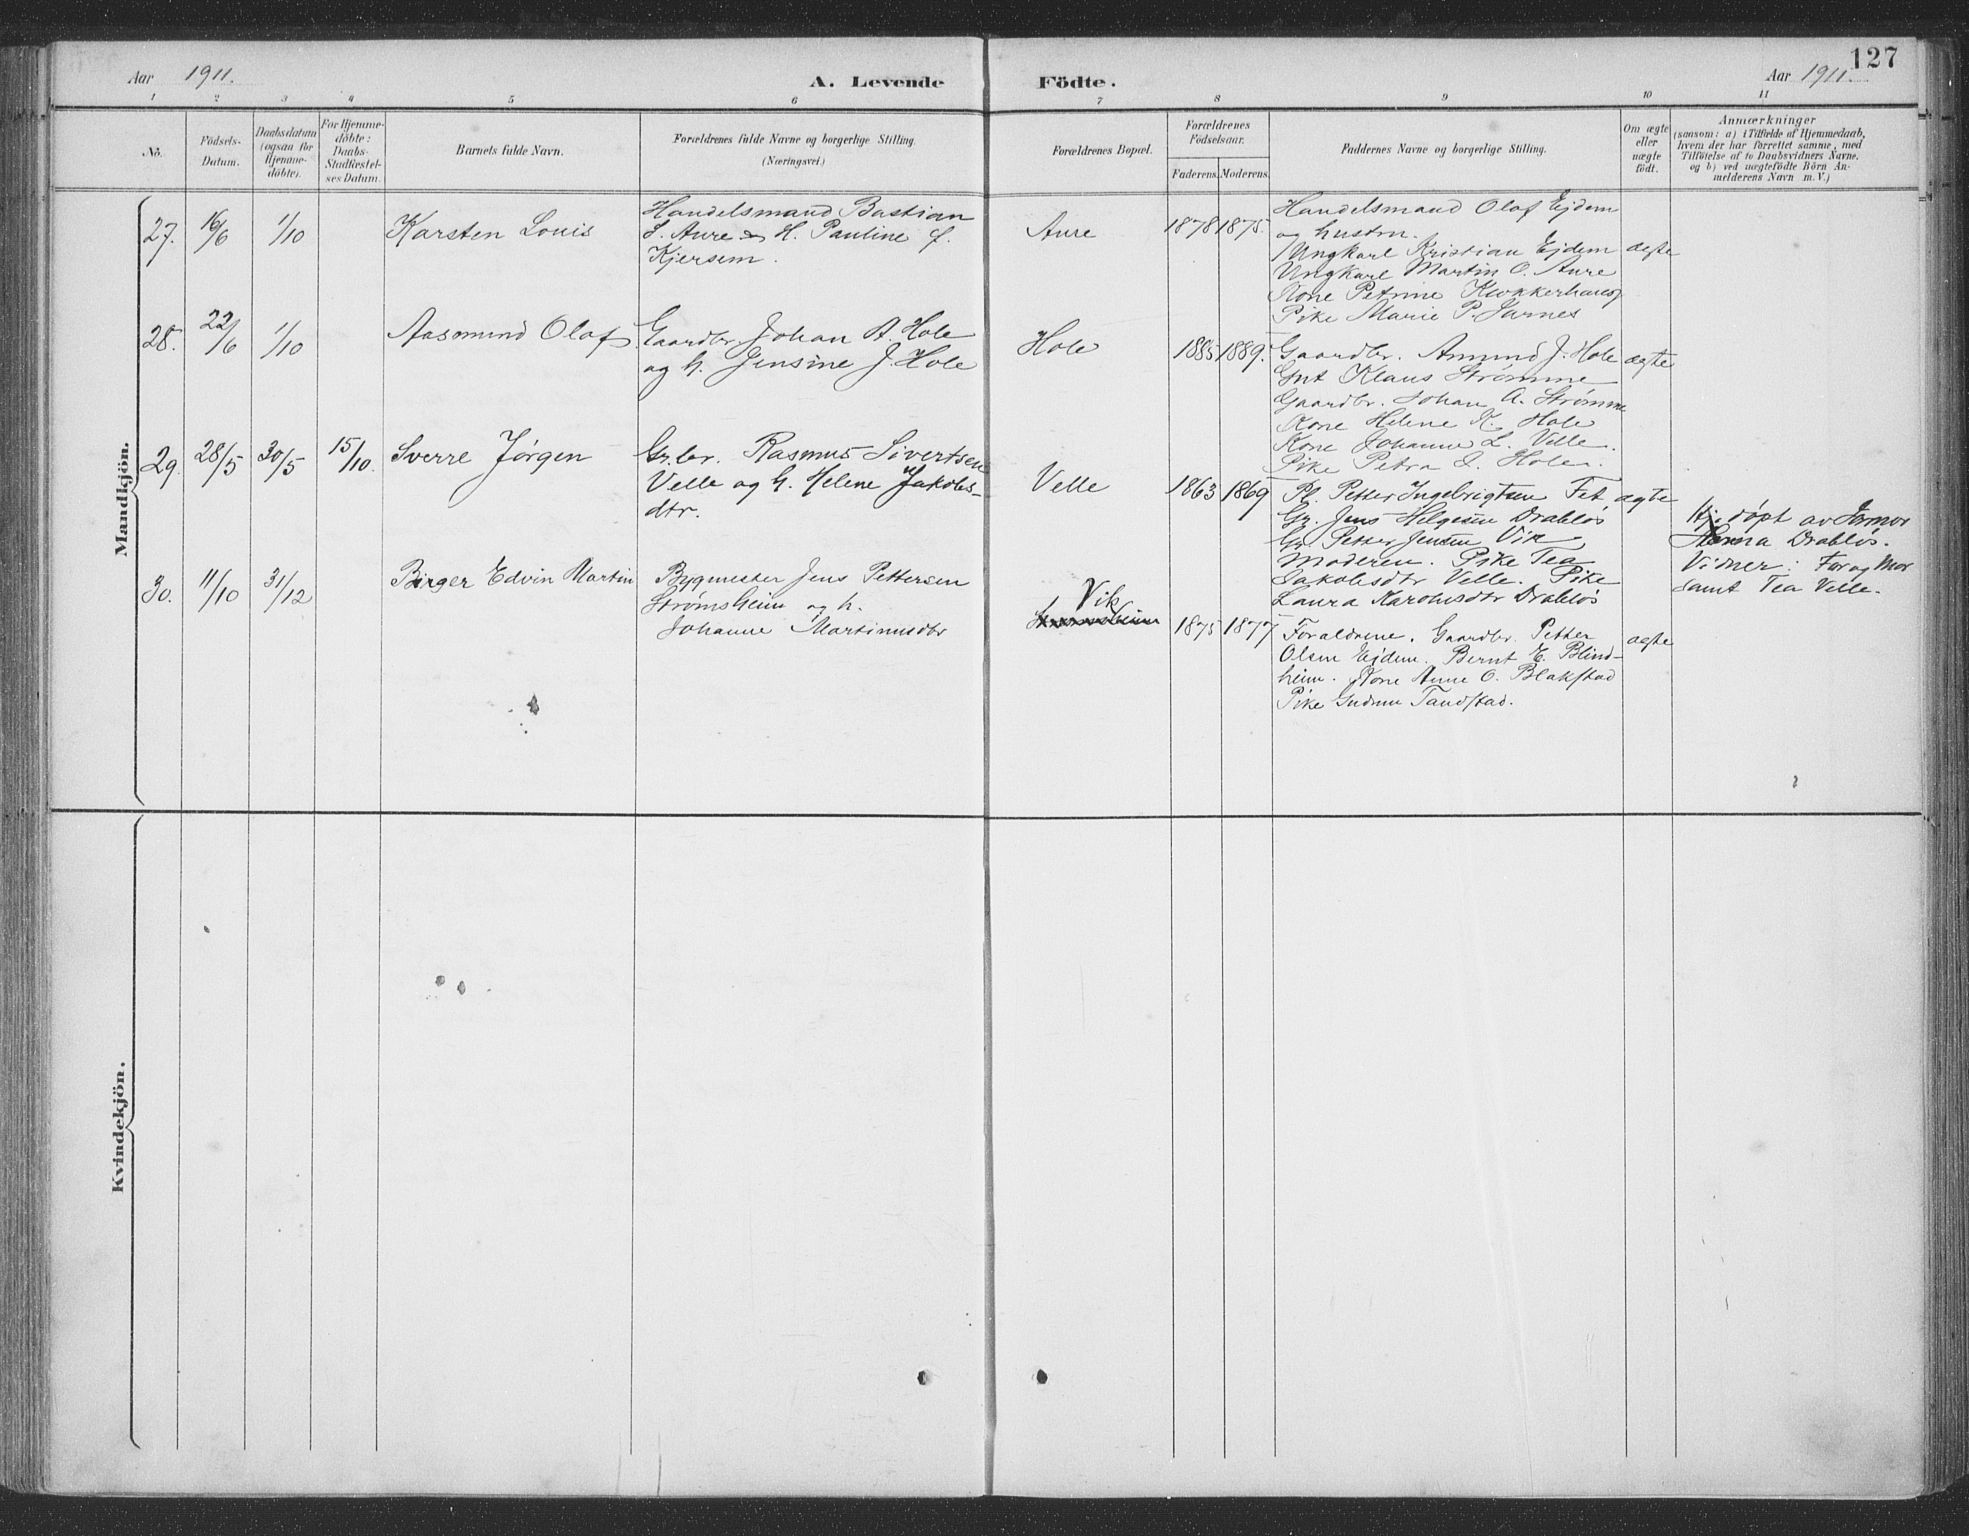 127
Aar 1911.
A. Levende Födte.
Aar 1911.
1 2 3 4 5 6 7 8 9 10 11
No.
Födsels-
Datum.
Daabsdatum
(ogsaa for
Hjemme-
döbte).
For Hjemme-
döbte:
Daabs-
Stadfæstel-
ses Datum.
Barnets fulde Navn.
Forældrenes fulde Navne og borgerlige Stilling.
(Næringsvei.)
Forældrenes Bopæl.
Forældrenes
Födselsaar.
Faderens. Moderens.
Faddernes Navne og borgerlige Stilling.
Om ægte
eller
uægte
födt.
Anmærkninger
(saasom: a) i Tilfælde af Hjemmedaab,
hvem der har forrettet samme, med
Tilföielse af to Daabsvidners Navne,
og b) ved uægtefödte Börn An-
melderens Navn m. V.)
Mandkjön.
27. 16/6 1/10 Karsten Louis
Handelsmand Bastian
L. Aure og H. Pauline f.
Kjersem.
Aure 1878 1875.
Handelsmand Olaf Ejdem
og hustru.
Ungkarl Kristian Ejdem
Ungkarl Martin O. Aure
Kone Petrine Klokkerhaug
Pike Marie P. Jarnes
ægte
28. 22/6 1/10 Aasmund Olaf
Gaardbr. Johan A. Hole
og h. Jensine J. Hole
Hole 1885 1889.
Gaardbr. Amund J. Hole
Gut Klaus Strømme
Gaardbr. Johan A. Strømme
Kone Helene K. Hole
Kone Johanne L. Velle.
Pike Petra J. Hole.
ægte
29. 28/5 30/5 15/10. Sverre Jørgen
Gr.br. Rasmus Sivertsen
Velle og h. Helene Jakobs-
dtr.
Velle 1863 1869
Pl. Petter Ingebrigtsen Fet
Gr. Jens Helgesen Drabløs
Gr. Petter Jensen Vik
Moderen. Pike Tea
Jakobsdtr Velle. Pike
Laura Karolusdtr Drabløs
ægte
Hj. døpt av Jormor
Drabløs.
Vidner: Far og Mor
samt Tea Velle.
30. 11/10 31/12 Birger Edvin Martin
Bygmester Jens Pettersen
Strømsheim og h.
Johanne Martinusdtr
Vik
Strømsheim 1875 1877
Forældrene. Gaardbr. Petter
Olsen Ejdem. Bernt E. Blind-
heim. Kone Anne O. Blakstad
Pike Gudrun Tandstad.
ægte
Kvindekjön.